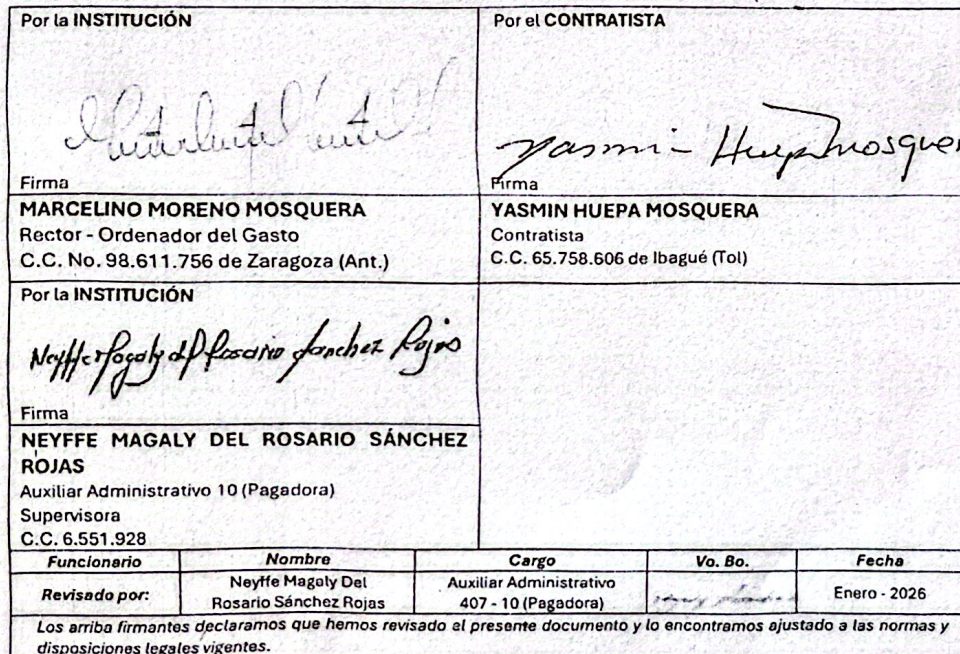 Por la INSTITUCIÓN
Firma
MARCELINO MORENO MOSQUERA
Rector - Ordenador del Gasto
C.C. No. 98.611.756 de Zaragoza (Ant.)
Por el CONTRATISTA
Yasmin Huepa Mosquer
Firma
YASMIN HUEPA MOSQUERA
Contratista
C.C. 65.758.606 de Ibagué (Tol)
Por la INSTITUCIÓN
Neyffe Magaly del Rosario Sanchez Rojas
Firma
NEYFFE MAGALY DEL ROSARIO SÁNCHEZ
ROJAS
Auxiliar Administrativo 10 (Pagadora)
Supervisora
C.C. 6.551.928
Funcionario Nombre Cargo Vo. Bo. Fecha
Revisado por:
Neyffe Magaly Del
Rosario Sánchez Rojas
Auxiliar Administrativo
407 - 10 (Pagadora)
Enero - 2026
Los arriba firmantes declaramos que hemos revisado el presente documento y lo encontramos ajustado a las normas y
disposiciones legales vigentes.